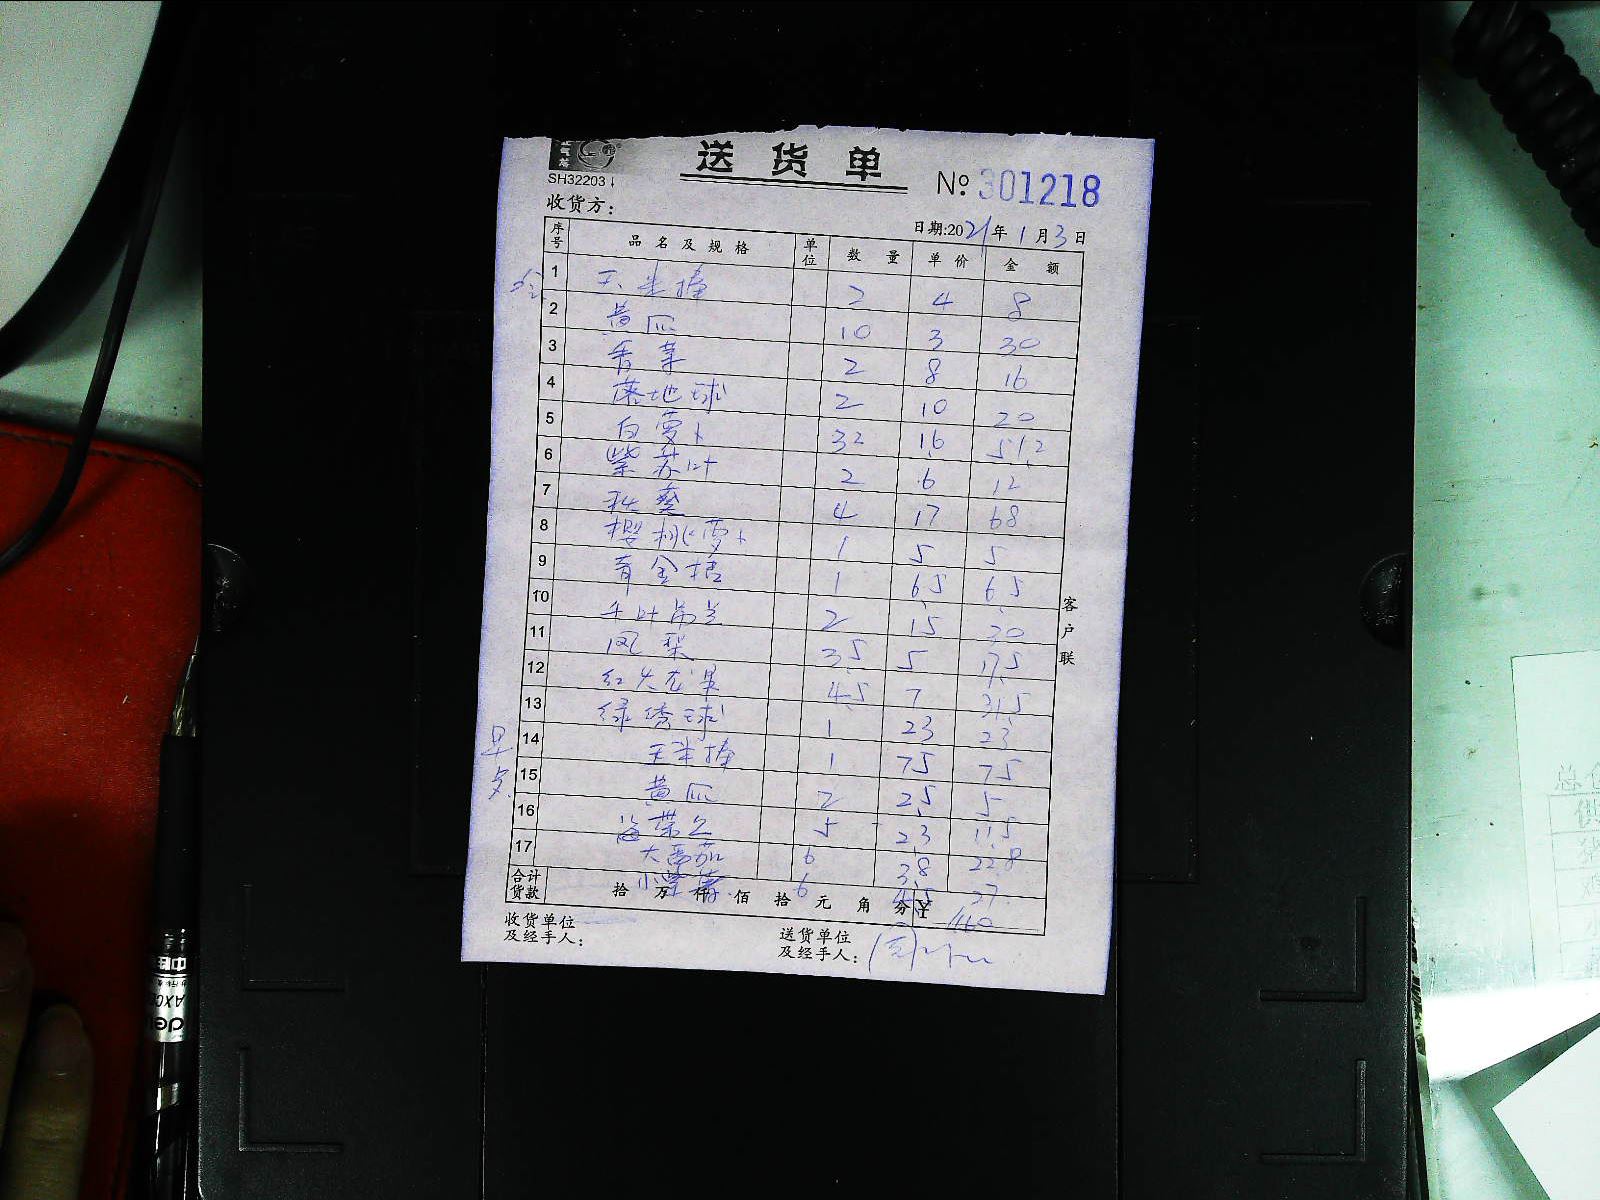 SH32203
送货单
№ 301218
收货方：
日期:2021年1月3日
序号 品名及规格 单位 数量 单价 金额
1 玉米棒 2 4 8
2 黄瓜 10 3 30
3 香菜 2 8 16
4 落地球 2 10 20
5 白萝卜 32 1.6 51.2
6 紫苏叶 2 6 12
7 秋葵 4 17 68
8 樱桃萝卜 1 5 5
9 青金桔 1 6.5 6.5
10 千叶吊兰 2 15 30
11 凤梨 3.5 5 17.5
12 红火龙果 4.5 7 31.5
13 绿绣球 1 23 23
早点
14 玉米棒 1 75 75
15 黄瓜 2 2.5 5
16 海带 5 2.3 11.5
17 大番茄 6 3.8 22.8
6 4.5 27
合计货款 拾 万 仟 佰 拾 元 角 分 ¥
收货单位及经手人：
送货单位及经手人：
客户联